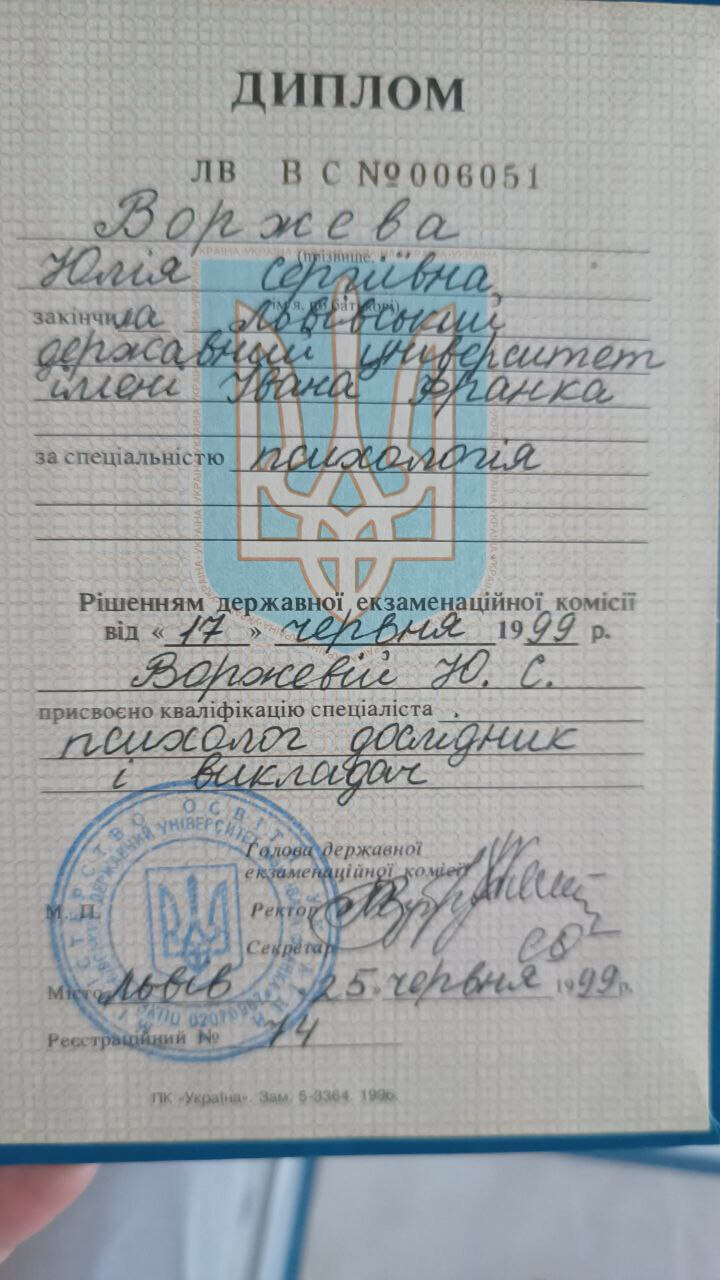 ДИПЛОМ
ЛВ ВС №006051
Воржева
(прізвище,
Юлія Сергіївна,
ім'я, по батькові)
закінчила Львівський
державний університет
імені Івана Франка
за спеціальністю психологія
Рішенням державної екзаменаційної комісії
від «17» червня 1999 р.
Воржевій Ю. С.
присвоєно кваліфікацію спеціаліста
психолог дослідник
і викладач
Голова державної
екзаменаційної комісії
М. П.
Ректор
Секретар
Місто Львів «25» червня 1999 р.
Реєстраційний № 74
ПК «Україна». Зам. 5-3364. 1996.